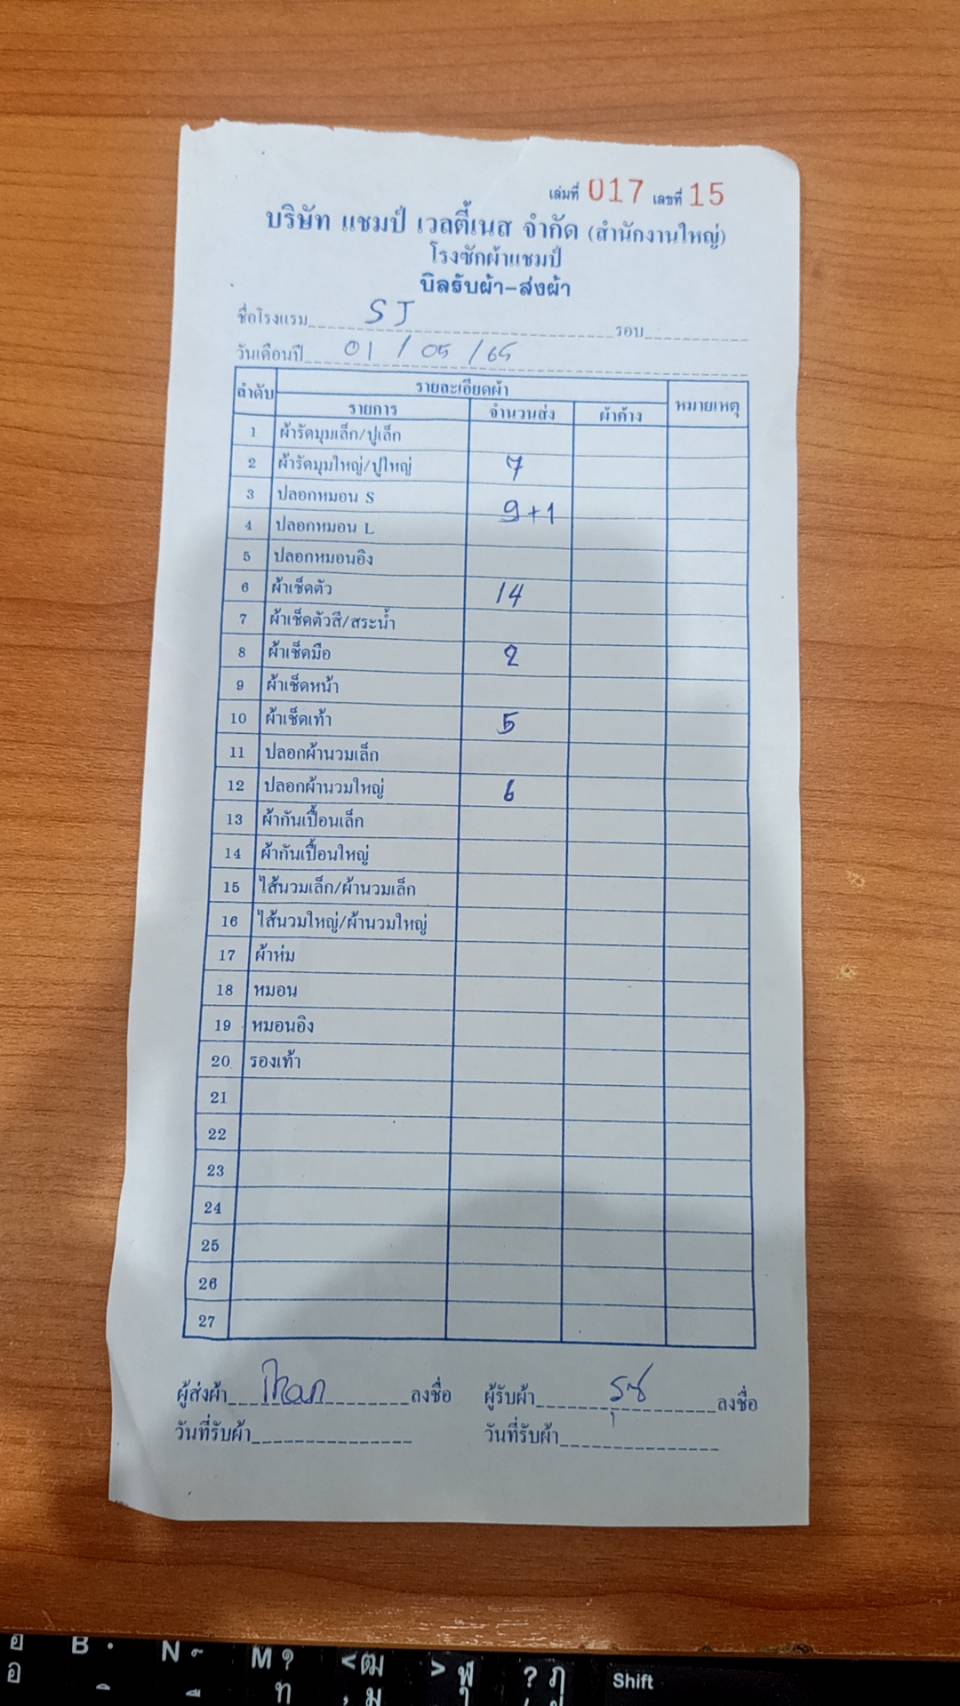 เล่มที่ 017 เลขที่ 15
บริษัท แชมป์ เวลตี้เนส จำกัด (สำนักงานใหญ่)
โรงซักผ้าแชมป์
บิลรับผ้า-ส่งผ้า
ชื่อโรงแรม SJ รอบ
วันเดือนปี 01/05/65
ลำดับ รายละเอียดผ้า หมายเหตุ
รายการ จำนวนส่ง ผ้าค้าง
1 ผ้ารัดมุมเล็ก/ปูเล็ก
2 ผ้ารัดมุมใหญ่/ปูใหญ่ 7
3 ปลอกหมอน S 9+1
4 ปลอกหมอน L
5 ปลอกหมอนอิง
6 ผ้าเช็ดตัว 14
7 ผ้าเช็ดตัวสี/สระน้ำ
8 ผ้าเช็ดมือ 2
9 ผ้าเช็ดหน้า
10 ผ้าเช็ดเท้า 5
11 ปลอกผ้านวมเล็ก
12 ปลอกผ้านวมใหญ่ 6
13 ผ้ากันเปื้อนเล็ก
14 ผ้ากันเปื้อนใหญ่
15 ไส้นวมเล็ก/ผ้านวมเล็ก
16 ไส้นวมใหญ่/ผ้านวมใหญ่
17 ผ้าห่ม
18 หมอน
19 หมอนอิง
20 รองเท้า
21
22
23
24
25
26
27
ผู้ส่งผ้า ลงชื่อ ผู้รับผ้า ลงชื่อ
วันที่รับผ้า วันที่รับผ้า
B N M < ฒ > ฬ ? ฦ Shift
ท ม